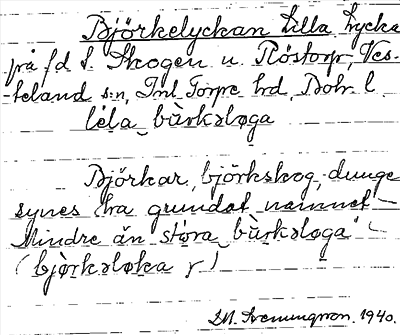 Björkelyckan Lilla Lycka
på f d t. Skogen u. Röstorp, Ves-
-teland sn, Inl Torpe hd, Boh. l
lela bùrksloga
Björkar, björkskog, dunge
synes ha grundat namnet
Mindre än stora bùrksloga
(bjòrksloka r)
1940.